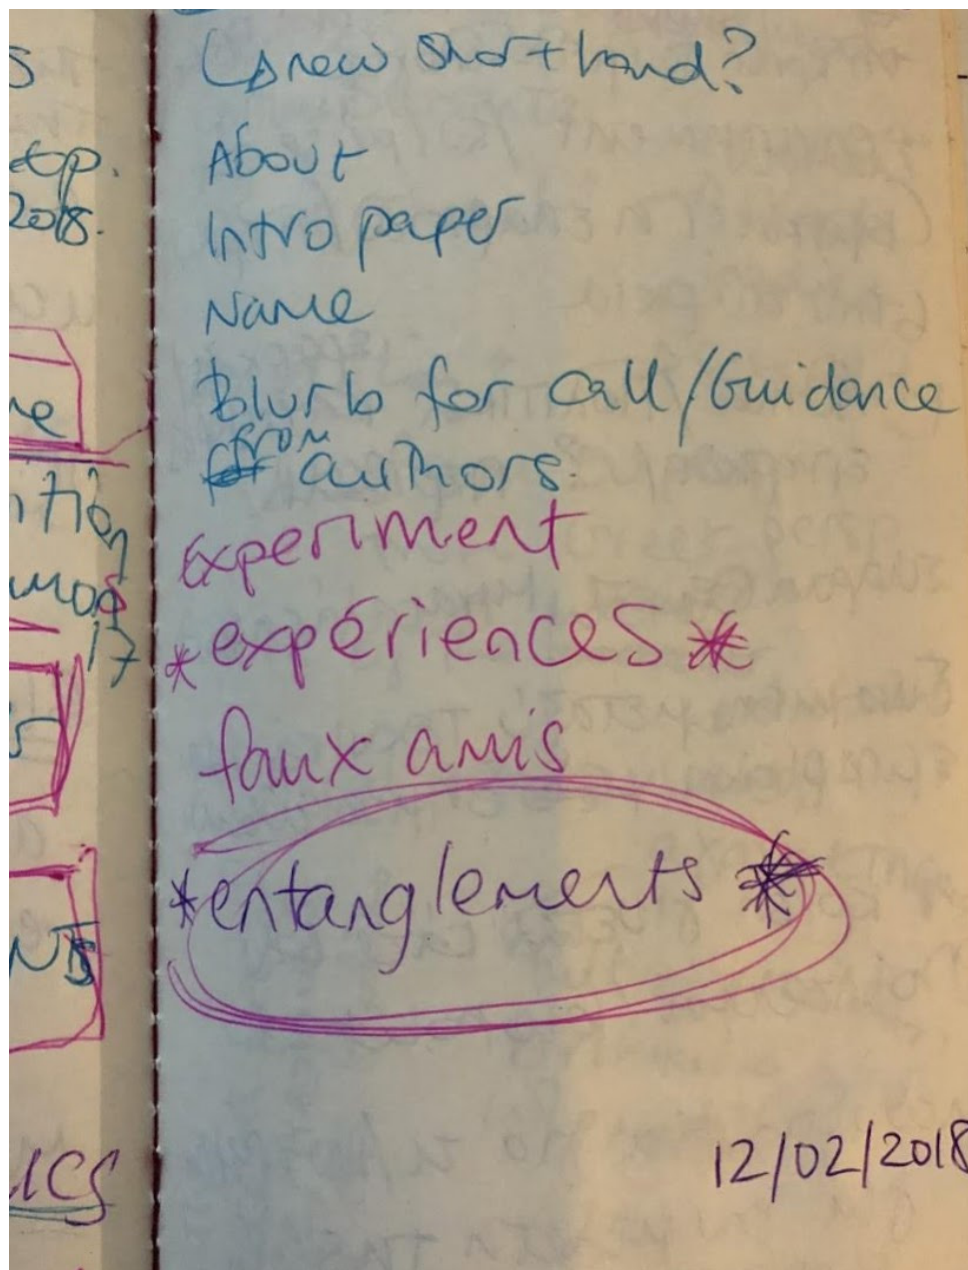 ↳ new shorthand?
About
Intro paper
Name
Blurb for call/Guidance
from authors.
Experiment
*expériences*
faux amis
*entanglements*
12/02/2018
2018.
17